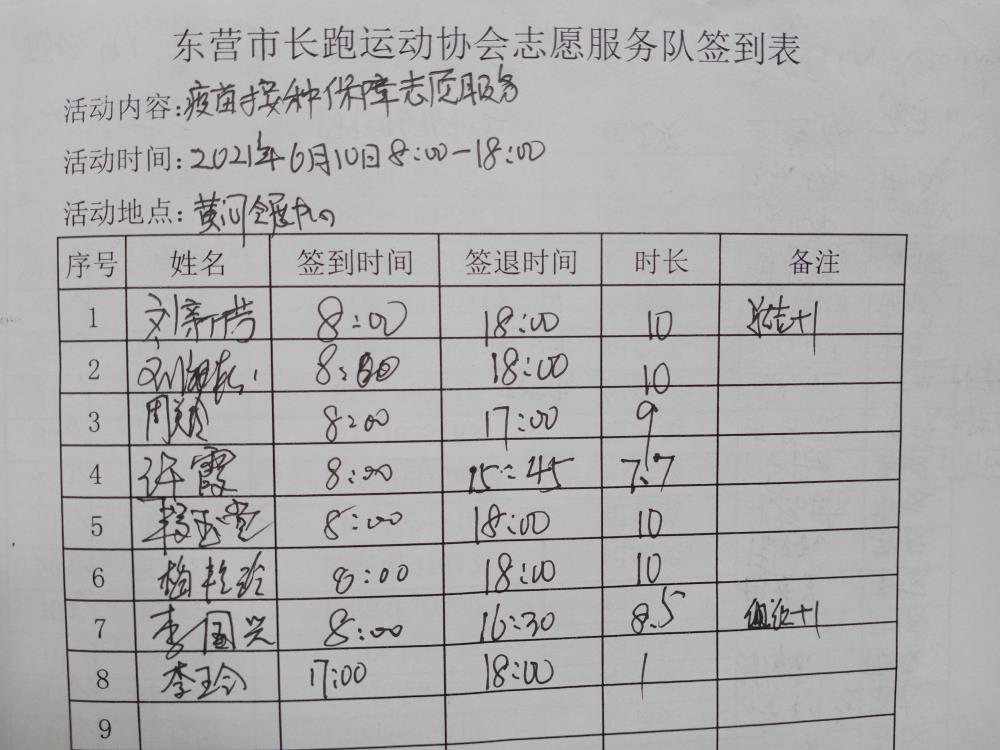 东营市长跑运动协会志愿服务队签到表
活动内容:疫苗接种保障志愿服务
活动时间:2021年6月10日8:00-18:00
活动地点:黄河会展中心
序号 姓名 签到时间 签退时间 时长 备注
1 刘新 8:00 18:00 10 +1
2 刘 8:00 18:00 10
3 周 8:00 17:00 9
4 许霞 8:00 15:45 7.7
5 8:00 18:00 10
6 梅艳玲 8:00 18:00 10
7 李国兴 8:00 16:30 8.5 +1
8 李玲 17:00 18:00 1
9